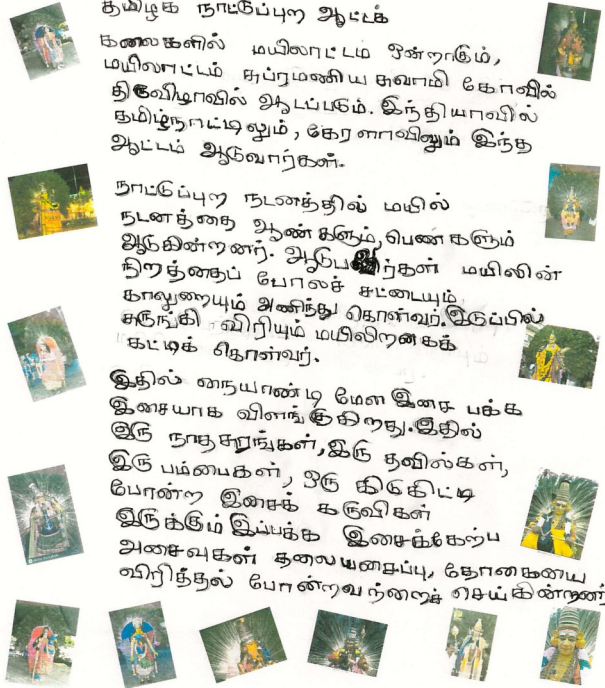 தமிழக நாட்டுப்புற ஆட்டக்
கலைகளில் மயிலாட்டம் ஒன்றாகும்,
மயிலாட்டம் சுப்ரமணிய சுவாமி கோவில்
திருவிழாவில் ஆடப்படும். இந்தியாவில்
தமிழ்நாட்டிலும், கேரளாவிலும் இந்த
ஆட்டம் ஆடுவார்கள்.
நாட்டுப்புற நடனத்தில் மயில்
நடனத்தை ஆண்களும், பெண்களும்
ஆடுகின்றனர். ஆடுபவர்கள் மயிலின்
நிறத்தைப் போலச் சட்டையும்
காலுறையும் அணிந்து கொள்வர். இடுப்பில்
சுருங்கி விரியும் மயிலிறகைக்
கட்டிக் கொள்வர்.
இதில் நையாண்டி மேள இசை பக்க
இசையாக விளங்குகிறது. இதில்
இரு நாதசுரங்கள், இரு தவில்கள்,
இரு பம்பைகள், ஒரு கிடுகிட்டி
போன்ற இசைக் கருவிகள்
இருக்கும் இப்பக்க இசைக்கேற்ப
அசைவுகள் தலையசைப்பு, தோகையை
விரித்தல் போன்றவற்றைச் செய்கின்றனர்